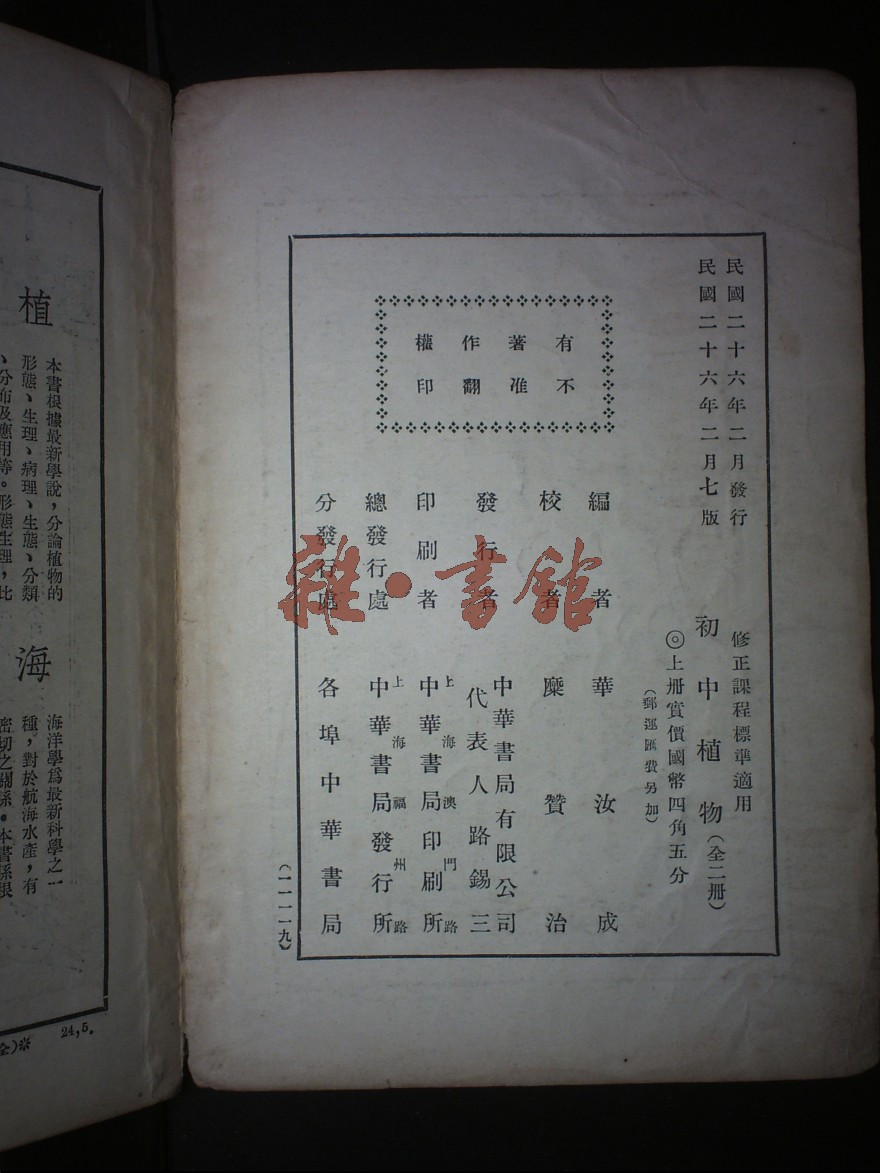 民國二十六年二月發行
民國二十六年二月七版
修正課程標準適用
初中植物(全二册)
◎上册實價國幣四角五分
(郵運匯費另加)
有著作權
不准翻印
編者 華汝成
校者 糜贊治
發行者 中華書局有限公司
代表人路錫三
印刷者 上海澳門路
中華書局印刷所
總發行處 上海福州路
中華書局發行所
分發行處 各埠中華書局
(一一一一九)
雜·書館
植
本書根據最新學說,分論植物的
形態、生理、病理、生態、分類
、分布及應用等。形態生理,比
海
海洋學爲最新科學之一
種,對於航海水產,有
密切之關係。本書係根
24,5.